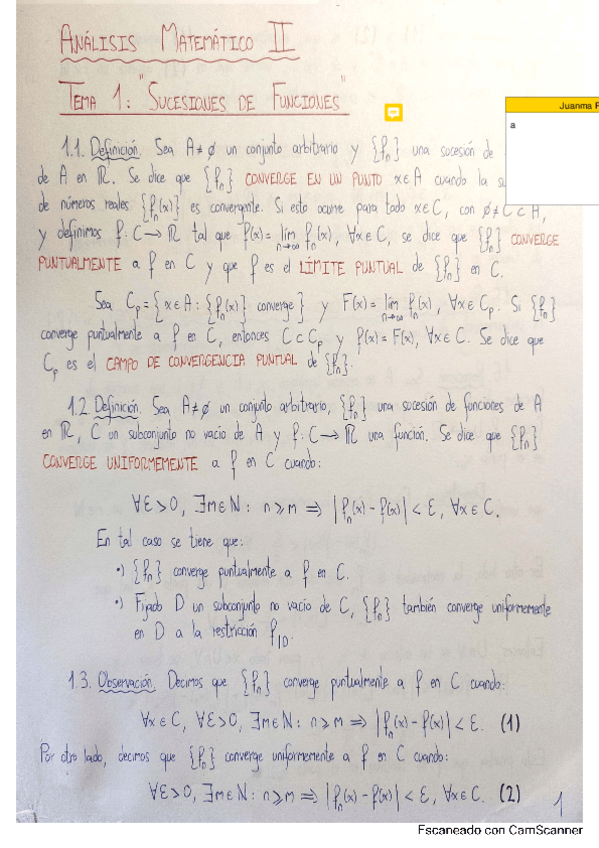 ANÁLISIS MATEMÁTICO II
TEMA 1: "SUCESIONES DE FUNCIONES"
Juanma P
a
1.1. Definición. Sea A≠∅ un conjunto arbitrario y {fₙ} una sucesión de
de A en ℝ. Se dice que {fₙ} CONVERGE EN UN PUNTO x∈A cuando la
de números reales {fₙ(x)} es convergente. Si esto ocurre para todo x∈C, con ∅≠C⊂A,
y definimos f: C→ℝ tal que f(x)= lím fₙ(x), ∀x∈C, se dice que {fₙ} CONVERGE
n→∞
PUNTUALMENTE a f en C y que f es el LÍMITE PUNTUAL de {fₙ} en C.
Sea Cₚ={x∈A: {fₙ(x)} converge} y F(x)= lím fₙ(x), ∀x∈Cₚ. Si {fₙ}
n→∞
converge puntualmente a f en C, entonces C⊂Cₚ y f(x)=F(x), ∀x∈C. Se dice que
Cₚ es el CAMPO DE CONVERGENCIA PUNTUAL de {fₙ}.
1.2 Definición. Sea A≠∅ un conjunto arbitrario, {fₙ} una sucesión de funciones de A
en ℝ, C un subconjunto no vacío de A y f: C→ℝ una función. Se dice que {fₙ}
CONVERGE UNIFORMEMENTE a f en C cuando:
∀ε>0, ∃m∈ℕ: n≥m ⇒ |fₙ(x)-f(x)|<ε, ∀x∈C.
En tal caso se tiene que:
•) {fₙ} converge puntualmente a f en C.
•) Fijado D un subconjunto no vacío de C, {fₙ} también converge uniformemente
en D a la restricción f|D.
1.3. Observación. Decimos que {fₙ} converge puntualmente a f en C cuando:
∀x∈C, ∀ε>0, ∃m∈ℕ: n≥m ⇒ |fₙ(x)-f(x)|<ε. (1)
Por otro lado, decimos que {fₙ} converge uniformemente a f en C cuando:
∀ε>0, ∃m∈ℕ: n≥m ⇒ |fₙ(x)-f(x)|<ε, ∀x∈C. (2)
1
Escaneado con CamScanner